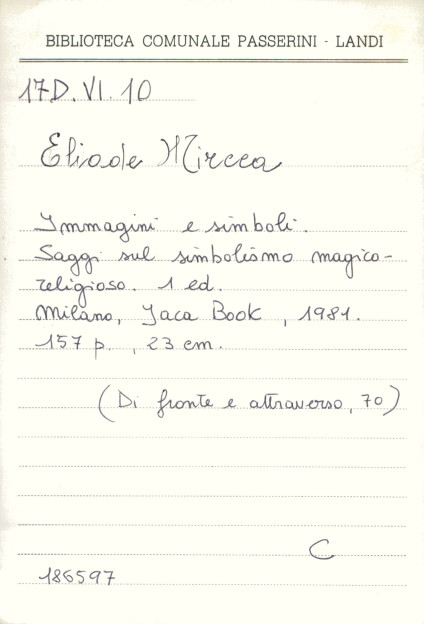 BIBLIOTECA COMUNALE PASSERINI - LANDI
17D.VI.10
Eliade Mircea
Immagini e simboli.
Saggi sul simbolismo magico-
religioso. 1 ed.
Milano, Jaca Book, 1981.
157 p., 23 cm.
(Di fronte e attraverso, 70)
C
186597